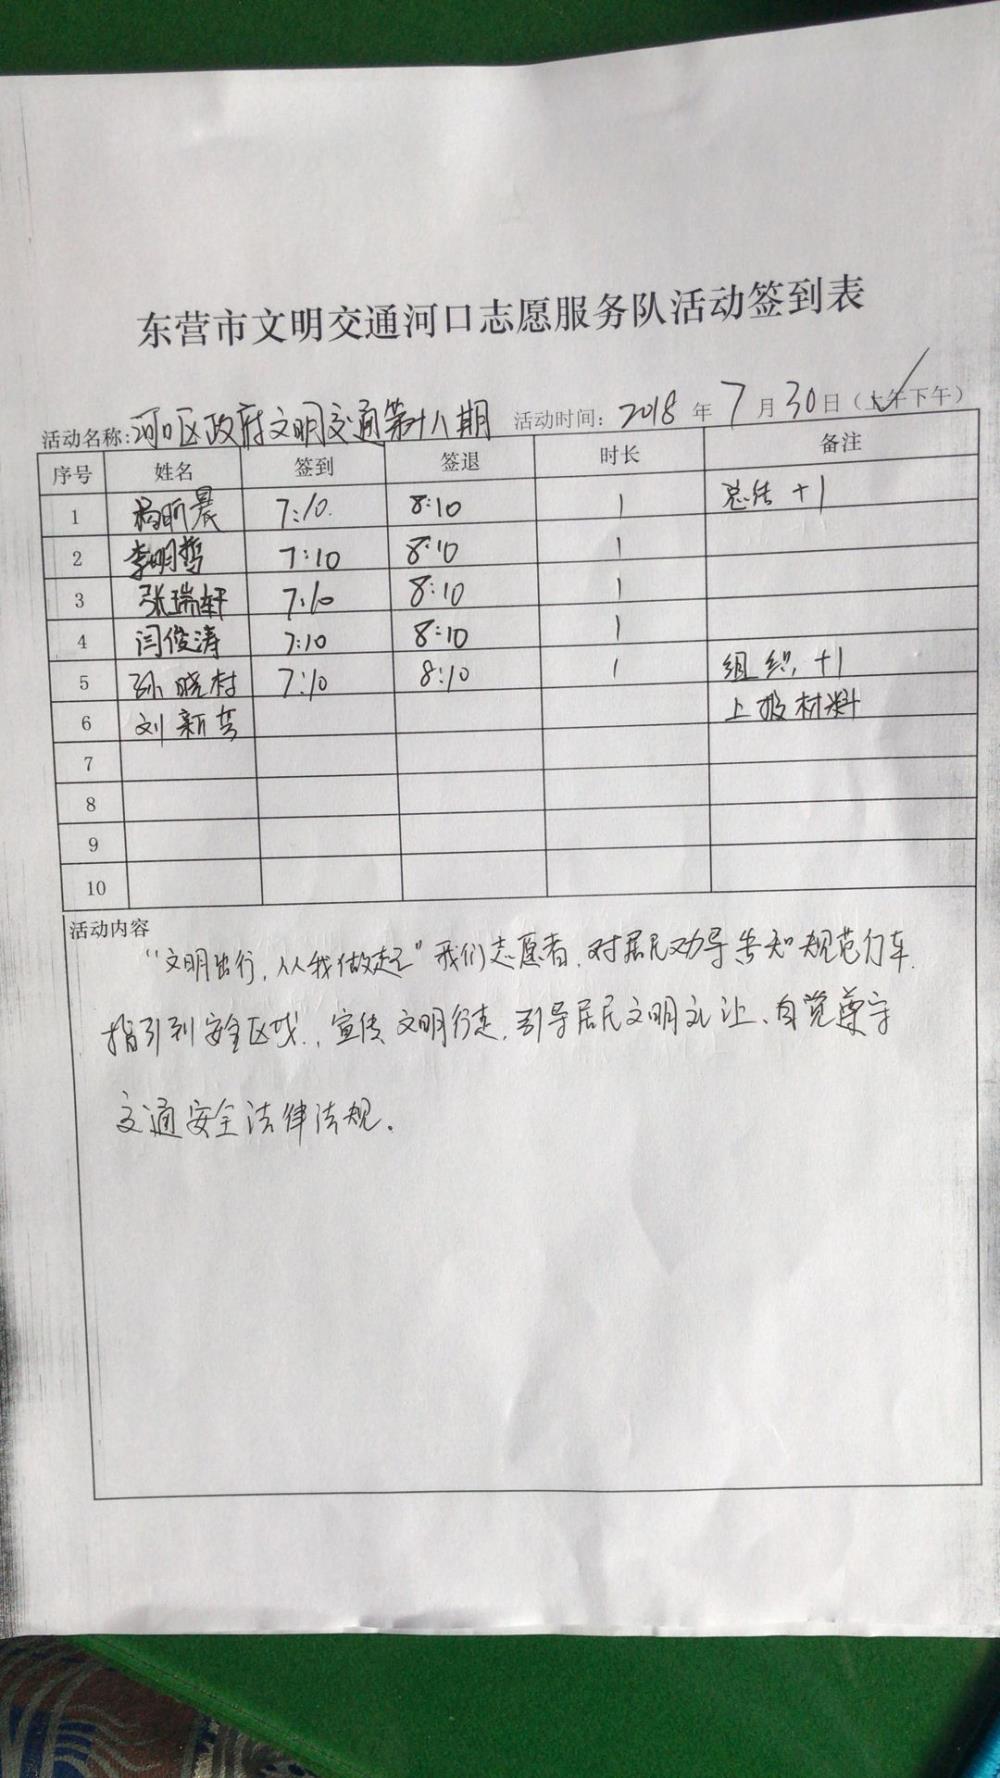 东营市文明交通河口志愿服务队活动签到表
活动名称:河口区政府文明交通第十八期 活动时间：2018年7月30日（上午下午）
序号 姓名 签到 签退 时长 备注
1 杨昕晨 7:10. 8:10 1 总结 +1
2 李明哲 7:10 8:10 1
3 张瑞轩 7:10 8:10 1
4 闫俊涛 7:10 8:10 1
5 孙晓村 7:10 8:10 1 组织, +1
6 刘新 上报材料
7
8
9
10
活动内容
“文明出行,从我做起”我们志愿者,对居民劝导告知规范行车.
指引到安全区域.,宣传文明行走,引导居民文明礼让、自觉遵守
交通安全法律法规.